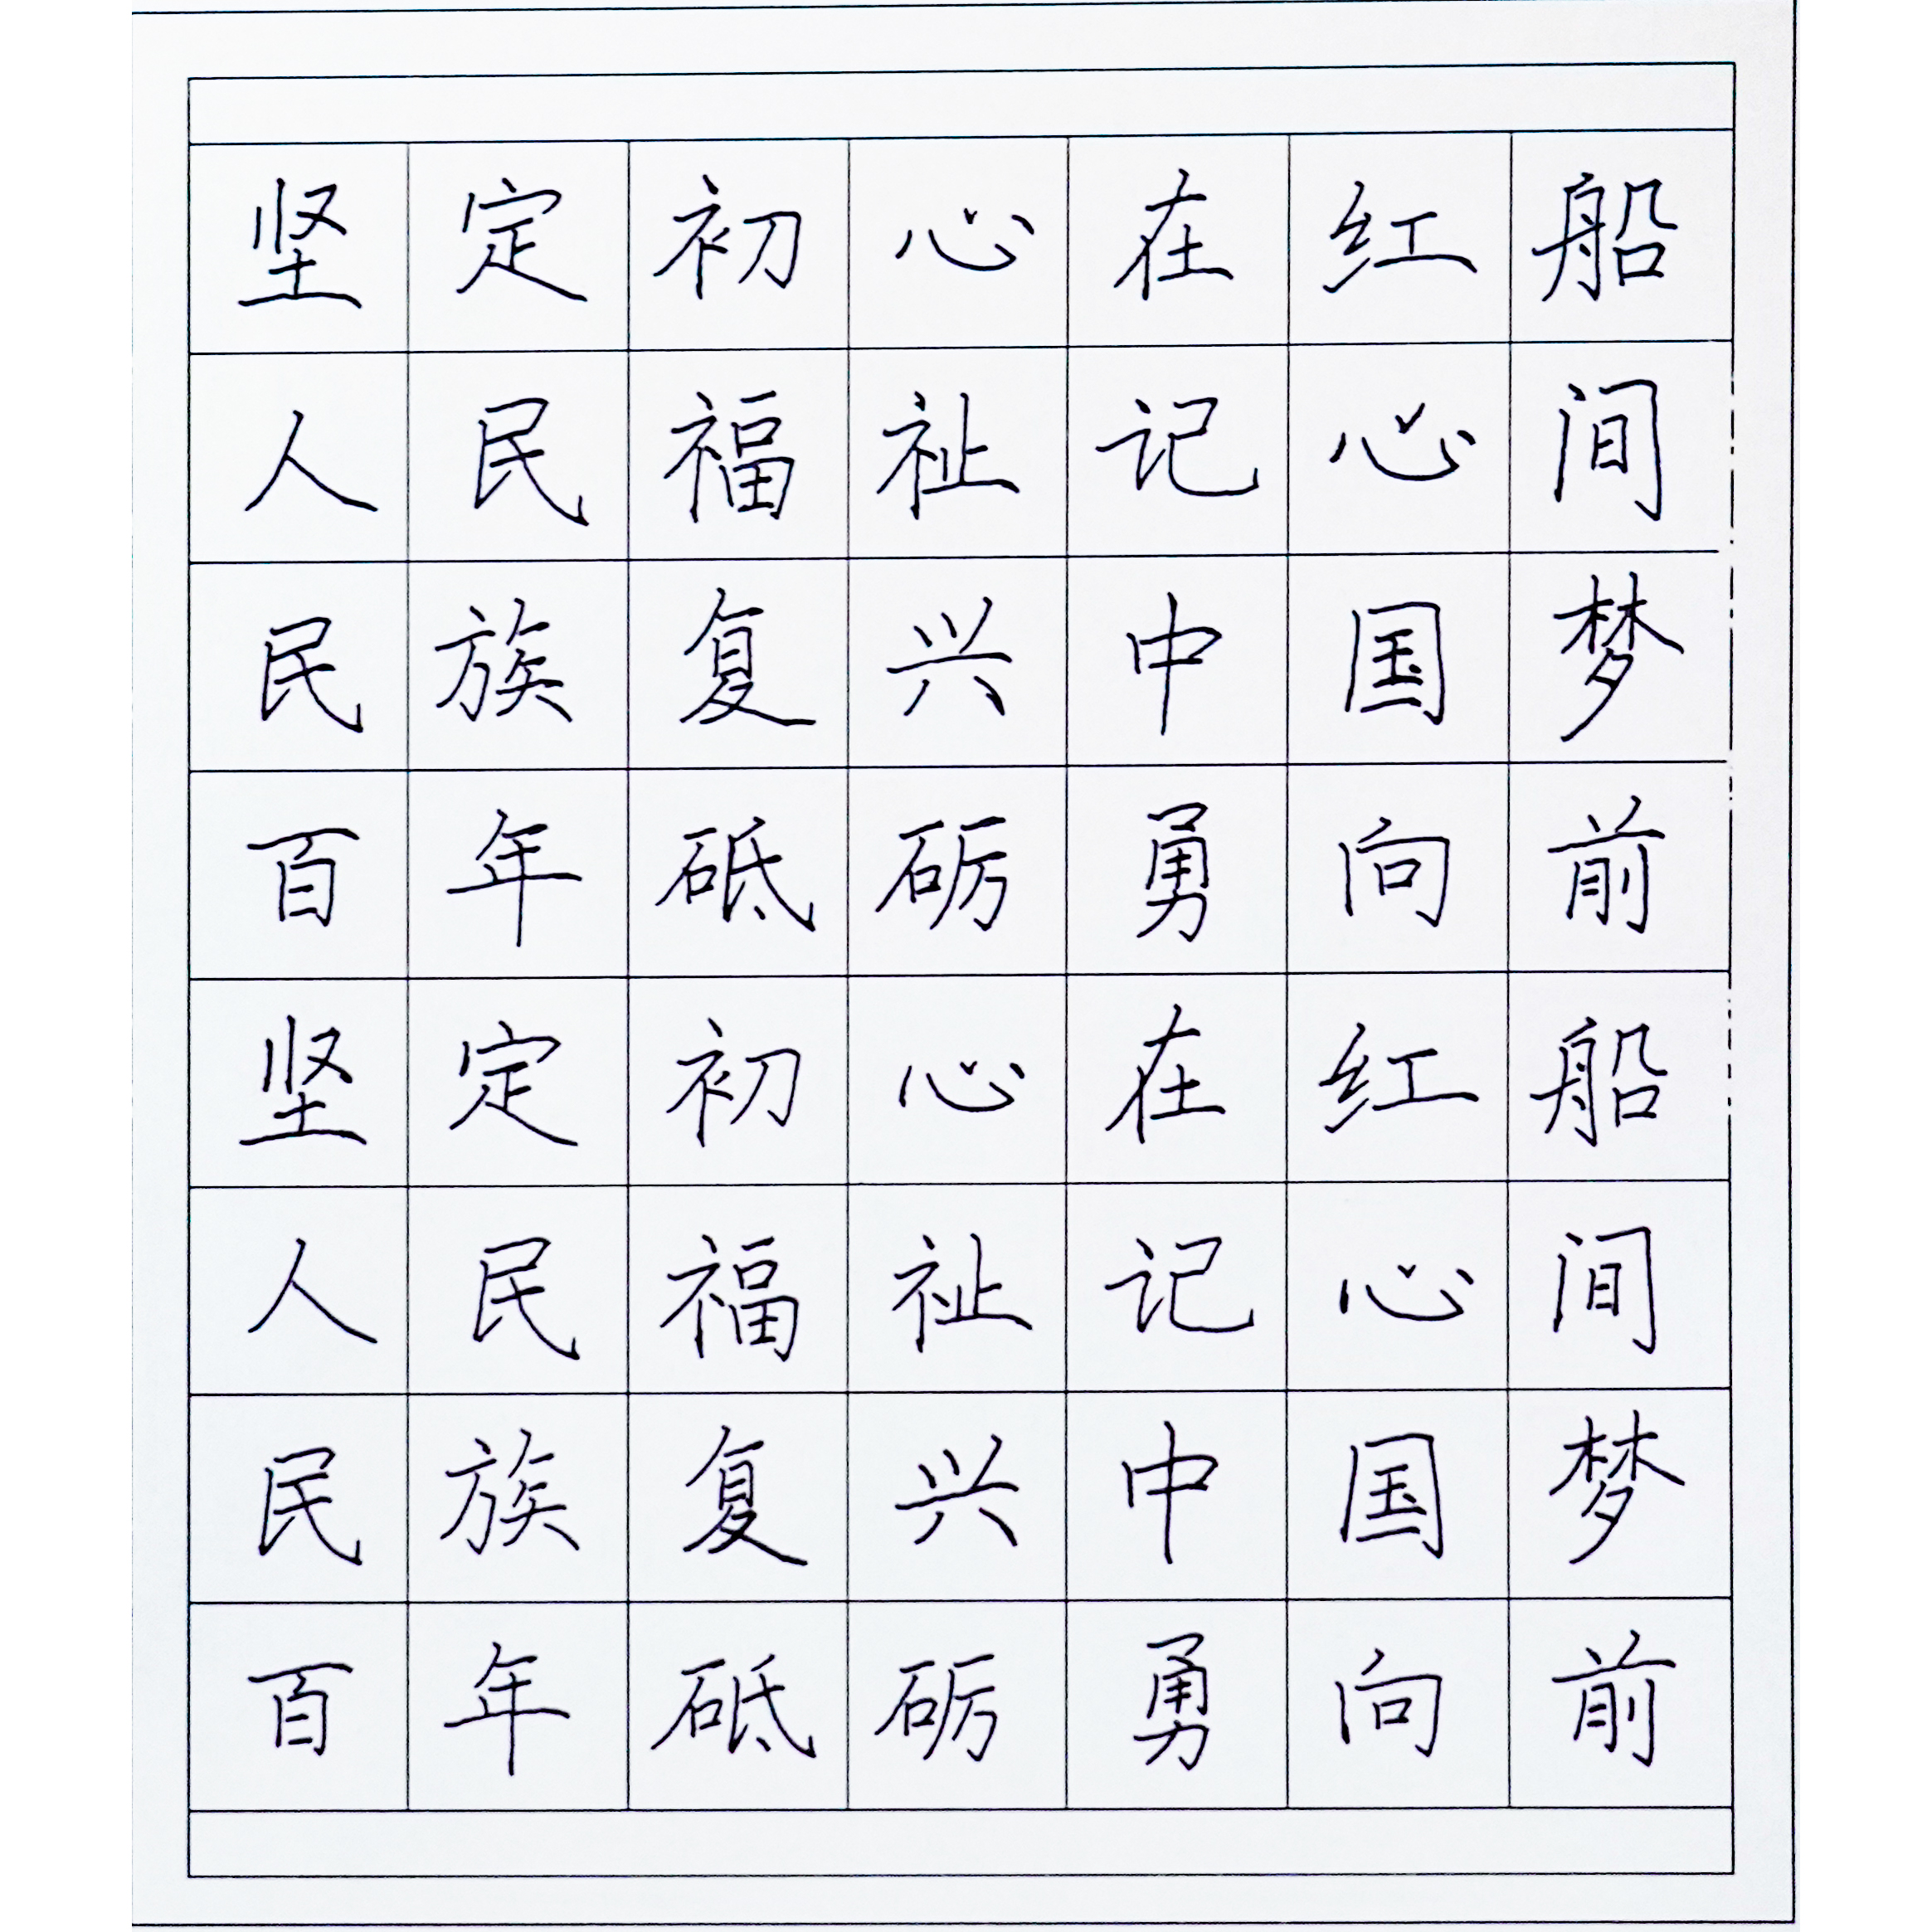 坚定初心在红船
人民福祉记心间
民族复兴中国梦
百年砥砺勇向前
坚定初心在红船
人民福祉记心间
民族复兴中国梦
百年砥砺勇向前